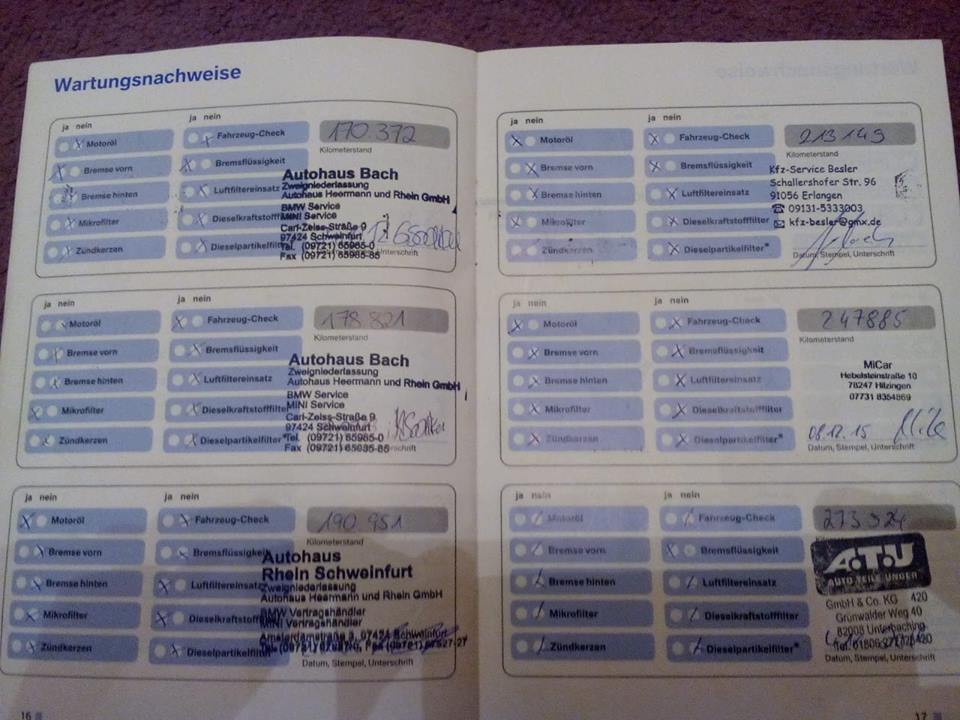 Wartungsnachweise
ja nein
ja nein
Motoröl
Fahrzeug-Check
170.372
Kilometerstand
Bremse vorn
Bremsflüssigkeit
Bremse hinten
Luftfiltereinsatz
Mikrofilter
Dieselkraftstofffilter
Zündkerzen
Dieselpartikelfilter*
Autohaus Bach
Zweigniederlassung
Autohaus Heermann und Rhein GmbH
BMW Service
MINI Service
Carl-Zeiss-Straße 9
97424 Schweinfurt
Tel. (09721) 65985-0
Fax (09721) 65985-85
Unterschrift
ja nein
ja nein
Motoröl
Fahrzeug-Check
178.821
Kilometerstand
Bremse vorn
Bremsflüssigkeit
Bremse hinten
Luftfiltereinsatz
Mikrofilter
Dieselkraftstofffilter
Zündkerzen
Dieselpartikelfilter*
Autohaus Bach
Zweigniederlassung
Autohaus Heermann und Rhein GmbH
BMW Service
MINI Service
Carl-Zeiss-Straße 9
97424 Schweinfurt
Tel. (09721) 65985-0
Fax (09721) 65985-85
ja nein
ja nein
Motoröl
Fahrzeug-Check
190.951
Kilometerstand
Bremse vorn
Bremsflüssigkeit
Bremse hinten
Luftfiltereinsatz
Mikrofilter
Dieselkraftstofffilter
Zündkerzen
Dieselpartikelfilter
Autohaus
Rhein Schweinfurt
Zweigniederlassung
Autohaus Heermann und Rhein GmbH
BMW Vertragshändler
MINI Vertragshändler
97424 Schweinfurt
Datum, Stempel, Unterschrift
16
ja nein
ja nein
Motoröl
Fahrzeug-Check
213149
Kilometerstand
Bremse vorn
Bremsflüssigkeit
Bremse hinten
Luftfiltereinsatz
Mikrofilter
Dieselkraftstofffilter
Zündkerzen
Dieselpartikelfilter*
Kfz-Service Besler
Schallershofer Str. 96
91056 Erlangen
☎ 09131-5333003
✉ kfz-besler@gmx.de
Datum, Stempel, Unterschrift
ja nein
ja nein
Motoröl
Fahrzeug-Check
247885
Kilometerstand
Bremse vorn
Bremsflüssigkeit
Bremse hinten
Luftfiltereinsatz
Mikrofilter
Dieselkraftstofffilter
Zündkerzen
Dieselpartikelfilter*
MiCar
Hebelsteinstraße 10
78247 Hilzingen
07731 8354869
08.12.15
Datum, Stempel, Unterschrift
ja nein
ja nein
Motoröl
Fahrzeug-Check
Bremse vorn
Bremsflüssigkeit
Bremse hinten
Luftfiltereinsatz
Mikrofilter
Dieselkraftstofffilter
Zündkerzen
Dieselpartikelfilter*
A.T.U
AUTO TEILE UNGER
GmbH & Co. KG 420
Grünwalder Weg 40
82008 Unterhaching
Datum, Stempel, Unterschrift
17